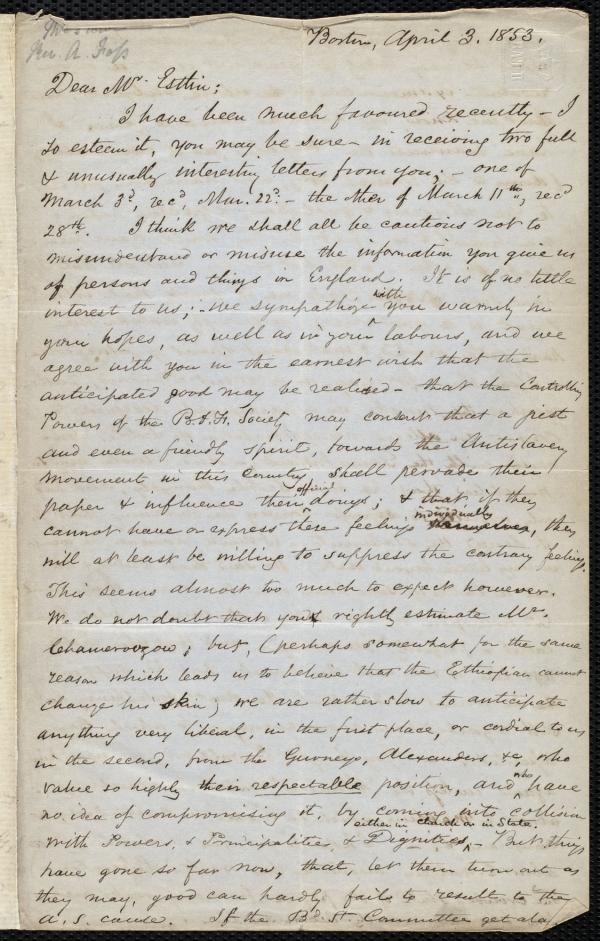 Boston, April 3. 1853.
Dear Mr. Estlin;
I have been much favoured recently - I
so esteem it, you may be sure - in receiving two full
& unusually interesting letters from you; - one of
March 3d, recd. Mar. 22d. - the other of March 11th, recd
28th. I think we shall all be cautious not to
misunderstand or misuse the information you give us
of persons and things in England. It is of no little
interest to us; - we sympathize with you warmly in
your hopes, as well as in your labours, and we
agree with you in the earnest wish that the
anticipated good may be realized - that the Controlling
Powers of the B. & F. Society may consent that a just
and even a friendly spirit, towards the Antislavery
movement in this Country, shall pervade their
paper & influence their official doings; & that if they
cannot have or express these feelings individually, they
will at least be willing to suppress the contrary feelings.
This seems almost too much to expect however.
We do not doubt that you rightly estimate Mr.
Chamerovzow; but, (perhaps somewhat for the same
reason which leads us to believe that the Ethiopian cannot
change his skin) we are rather slow to anticipate
anything very liberal, in the first place, or cordial to us
in the second, from the Gurneys, Alexanders, &c, who
value so highly their respectable position, and who have
no idea of compromising it, by coming into collision
with Powers, & Principalities, & Dignities, either in church or in State. - But things
have gone so far now, that, let them turn out as
they may, good can hardly fail to result to the
A. S. cause. If the Bd. St. Committee get